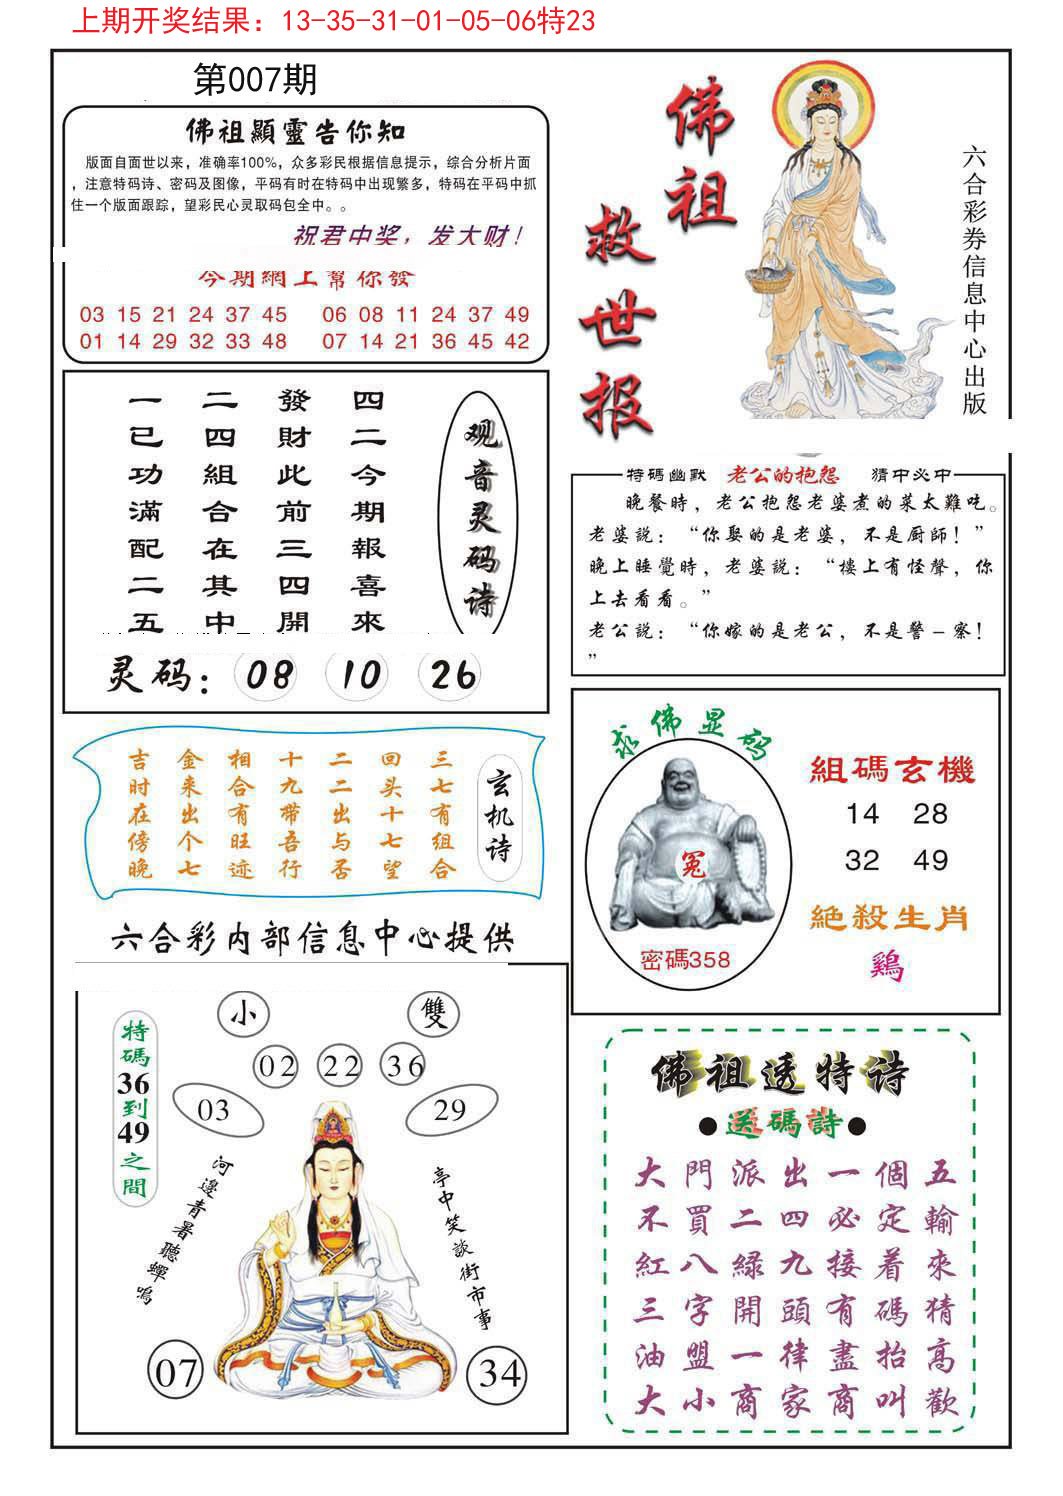 上期开奖结果：13-35-31-01-05-06特23
第007期
佛祖顯靈告你知
版面自面世以来，准确率100%，众多彩民根据信息提示，综合分析片面
，注意特码诗、密码及图像，平码有时在特码中出现繁多，特码在平码中抓
住一个版面跟踪，望彩民心灵取码包全中。。
祝君中奖，发大财！
今期網上幫你發
03 15 21 24 37 45 06 08 11 24 37 49
01 14 29 32 33 48 07 14 21 36 45 42
佛祖
救世报
六合彩券信息中心出版
观音灵码诗
四二今期報喜來
發財此前三四開
二四組合在其中
一已功滿配二五
灵码：08 10 26
特碼幽默 老公的抱怨 猜中必中
晚餐時，老公抱怨老婆煮的菜太難吃。
老婆説：“你娶的是老婆，不是厨師！”
晚上睡覺時，老婆説：“樓上有怪聲，你
上去看看。”
老公説：“你嫁的是老公，不是警－察！
”
玄机诗
三七有组合
回头十七望
二二出与否
十九带吾行
相合有旺迹
金来出个七
吉时在傍晚
求佛显码
冤
密碼358
組碼玄機
14 28
32 49
絶殺生肖
鷄
六合彩内部信息中心提供
特碼36到49之間
小 雙
02 22 36
03 29
河邊青暑聽蟬鳴
亭中笑談街市事
07 34
佛祖透特诗
●送碼詩●
大門派出一個五
不買二四必定輸
紅八綠九接着來
三字開頭有碼猜
油盟一律盡抬高
大小商家商叫歡